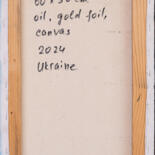 60 x 50 cm
oil, gold foil,
canvas
2024
Ukraine